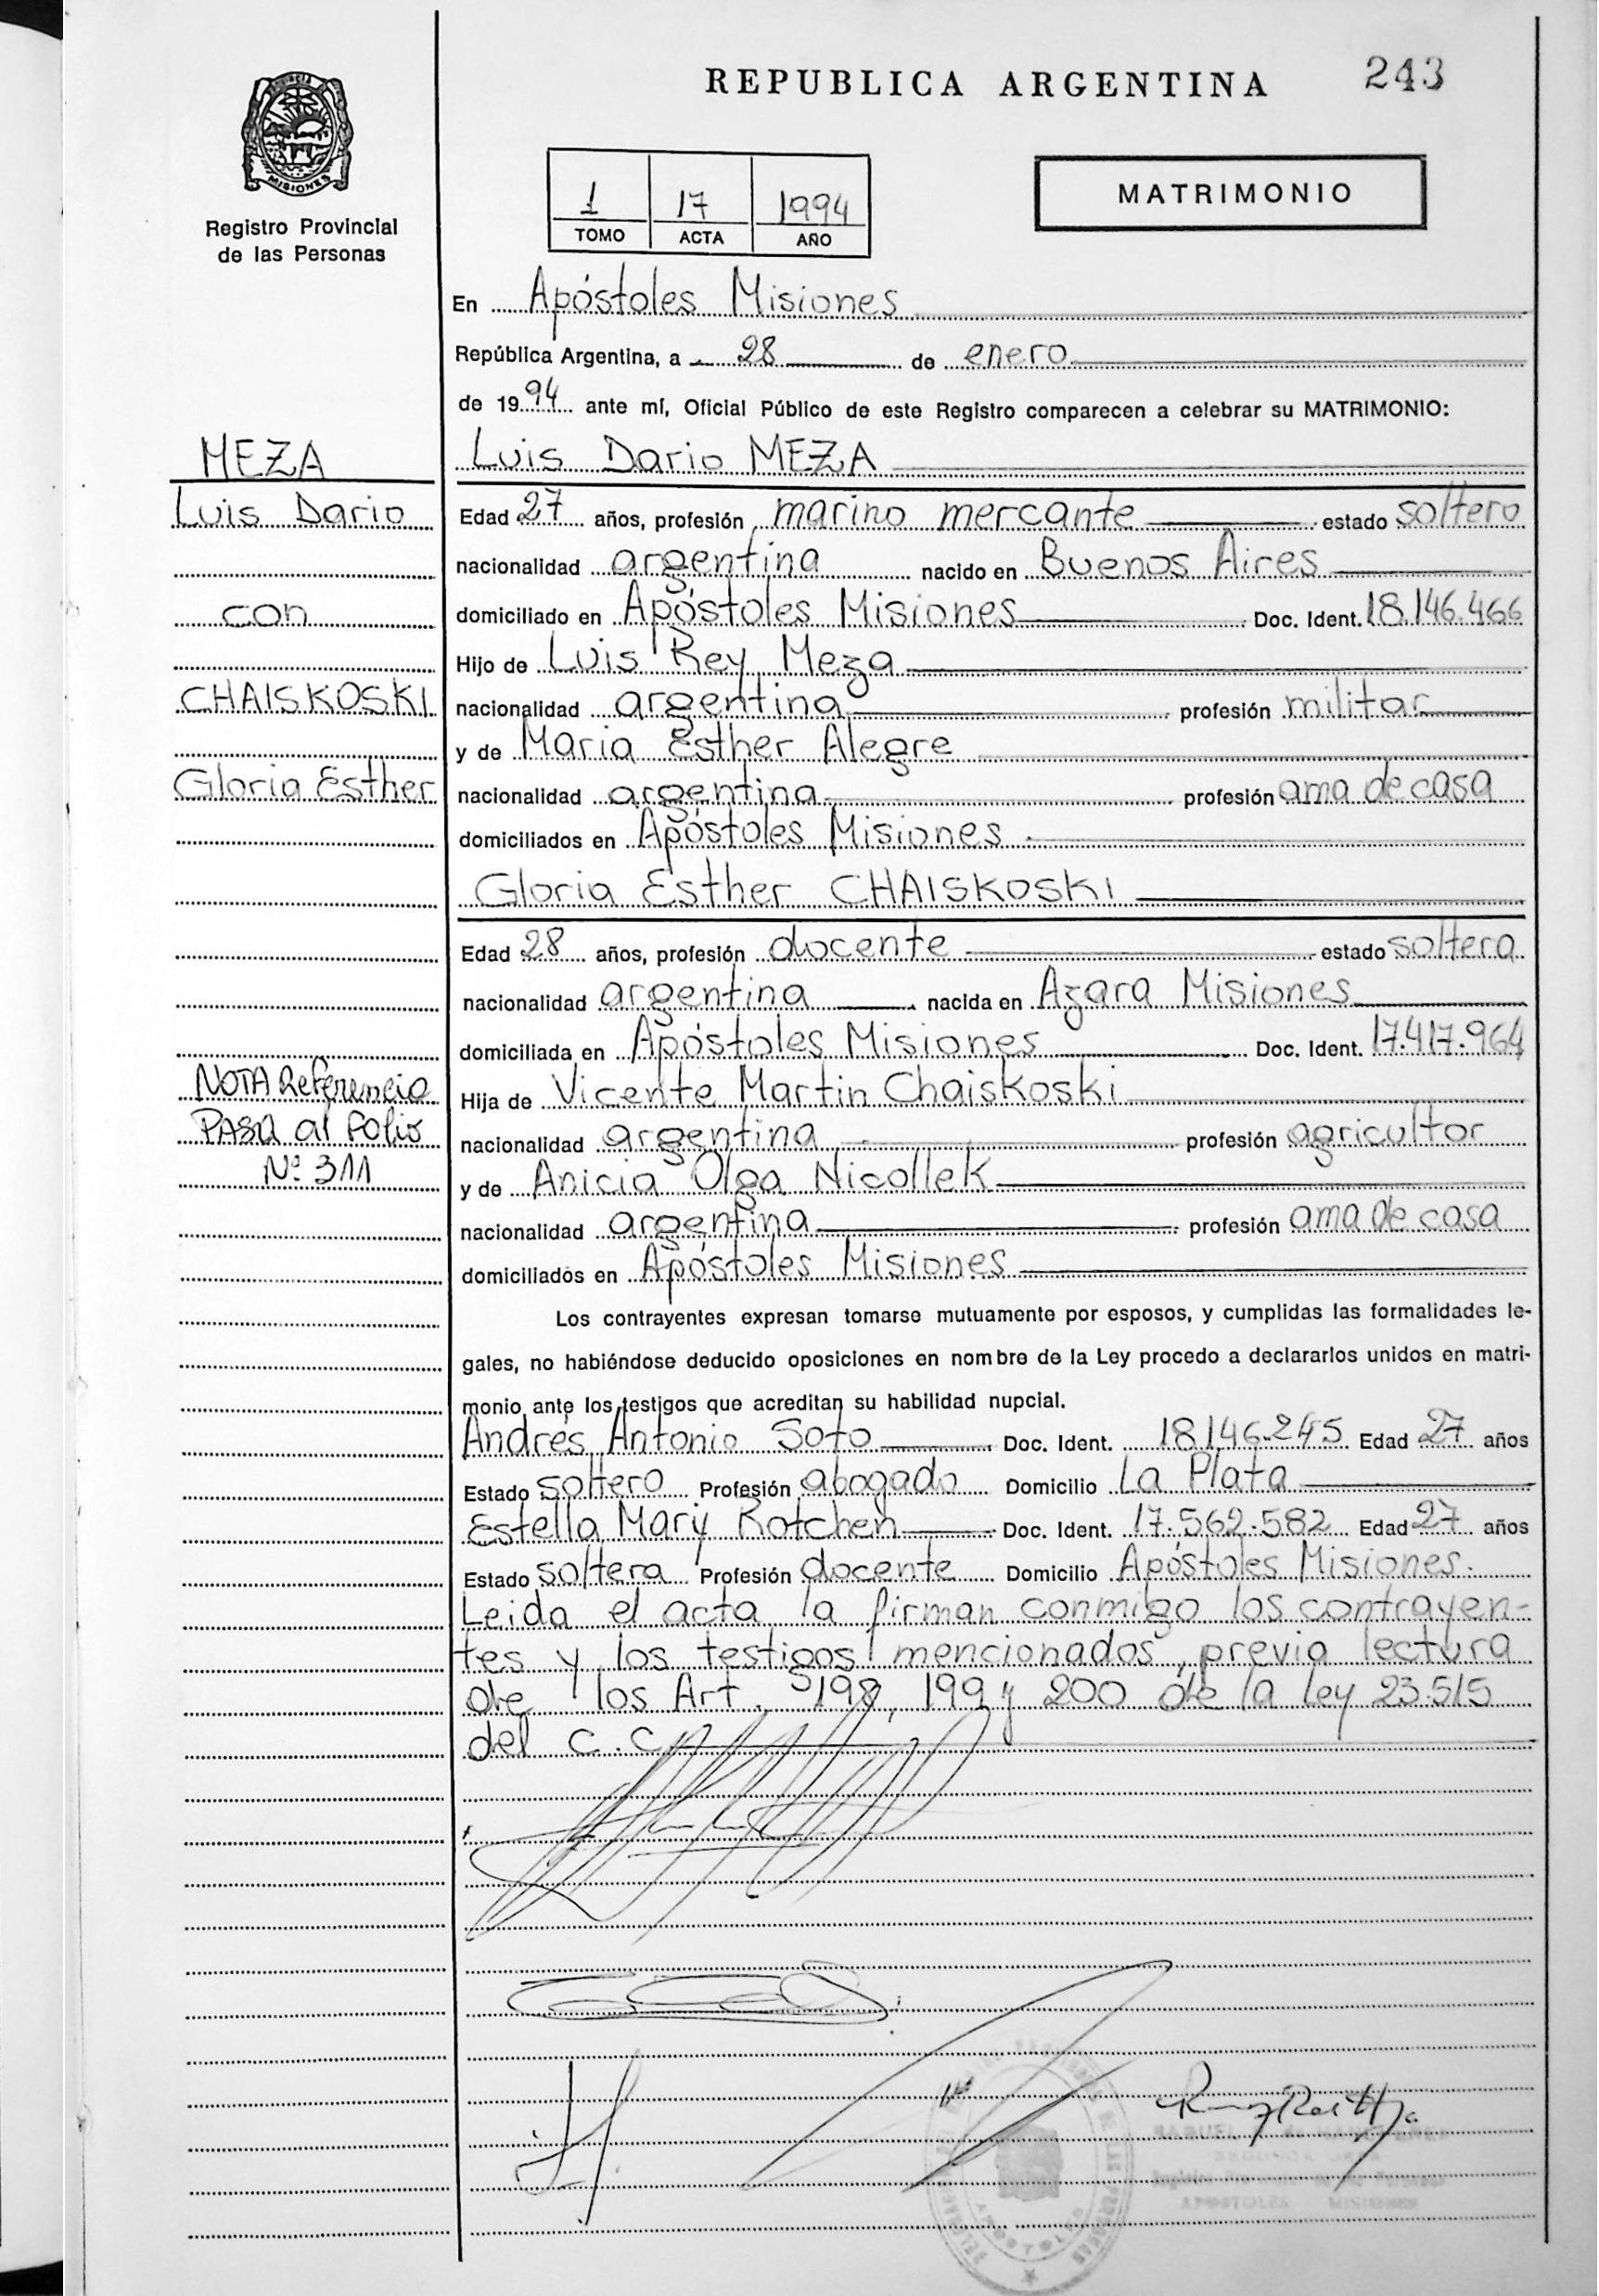 REPUBLICA ARGENTINA 243
MISIONES
Registro Provincial
de las Personas
1 17 1994
TOMO ACTA AÑO
MATRIMONIO
En Apóstoles Misiones
República Argentina, a 28 de enero
de 1994 ante mí, Oficial Público de este Registro comparecen a celebrar su MATRIMONIO:
MEZA
Luis Dario
con
CHAISKOSKI
Gloria Esther
NOTA Referencia
PASA al folio
Nº 311
Luis Dario MEZA
Edad 27 años, profesión marino mercante estado soltero
nacionalidad argentina nacido en Buenos Aires
domiciliado en Apóstoles Misiones Doc. Ident. 18.146.466
Hijo de Luis Rey Meza
nacionalidad argentina profesión militar
y de Maria Esther Alegre
nacionalidad argentina profesión ama de casa
domiciliados en Apóstoles Misiones
Gloria Esther CHAISKOSKI
Edad 28 años, profesión docente estado soltera
nacionalidad argentina nacida en Azara Misiones
domiciliada en Apóstoles Misiones Doc. Ident. 17.417.964
Hija de Vicente Martin Chaiskoski
nacionalidad argentina profesión agricultor
y de Anicia Olga Nicollek
nacionalidad argentina profesión ama de casa
domiciliados en Apóstoles Misiones
Los contrayentes expresan tomarse mutuamente por esposos, y cumplidas las formalidades le-
gales, no habiéndose deducido oposiciones en nombre de la Ley procedo a declararlos unidos en matri-
monio ante los testigos que acreditan su habilidad nupcial.
Andrés Antonio Soto Doc. Ident. 18.146.245 Edad 27 años
Estado soltero Profesión abogado Domicilio La Plata
Estella Mary Rotchen Doc. Ident. 17.562.582 Edad 27 años
Estado soltera Profesión docente Domicilio Apóstoles Misiones.
Leida el acta la firman conmigo los contrayen-
tes y los testigos mencionados, previa lectura
de los Art. 198, 199 y 200 de la ley 23.515
del C.C.
APOSTOLES MISIONES